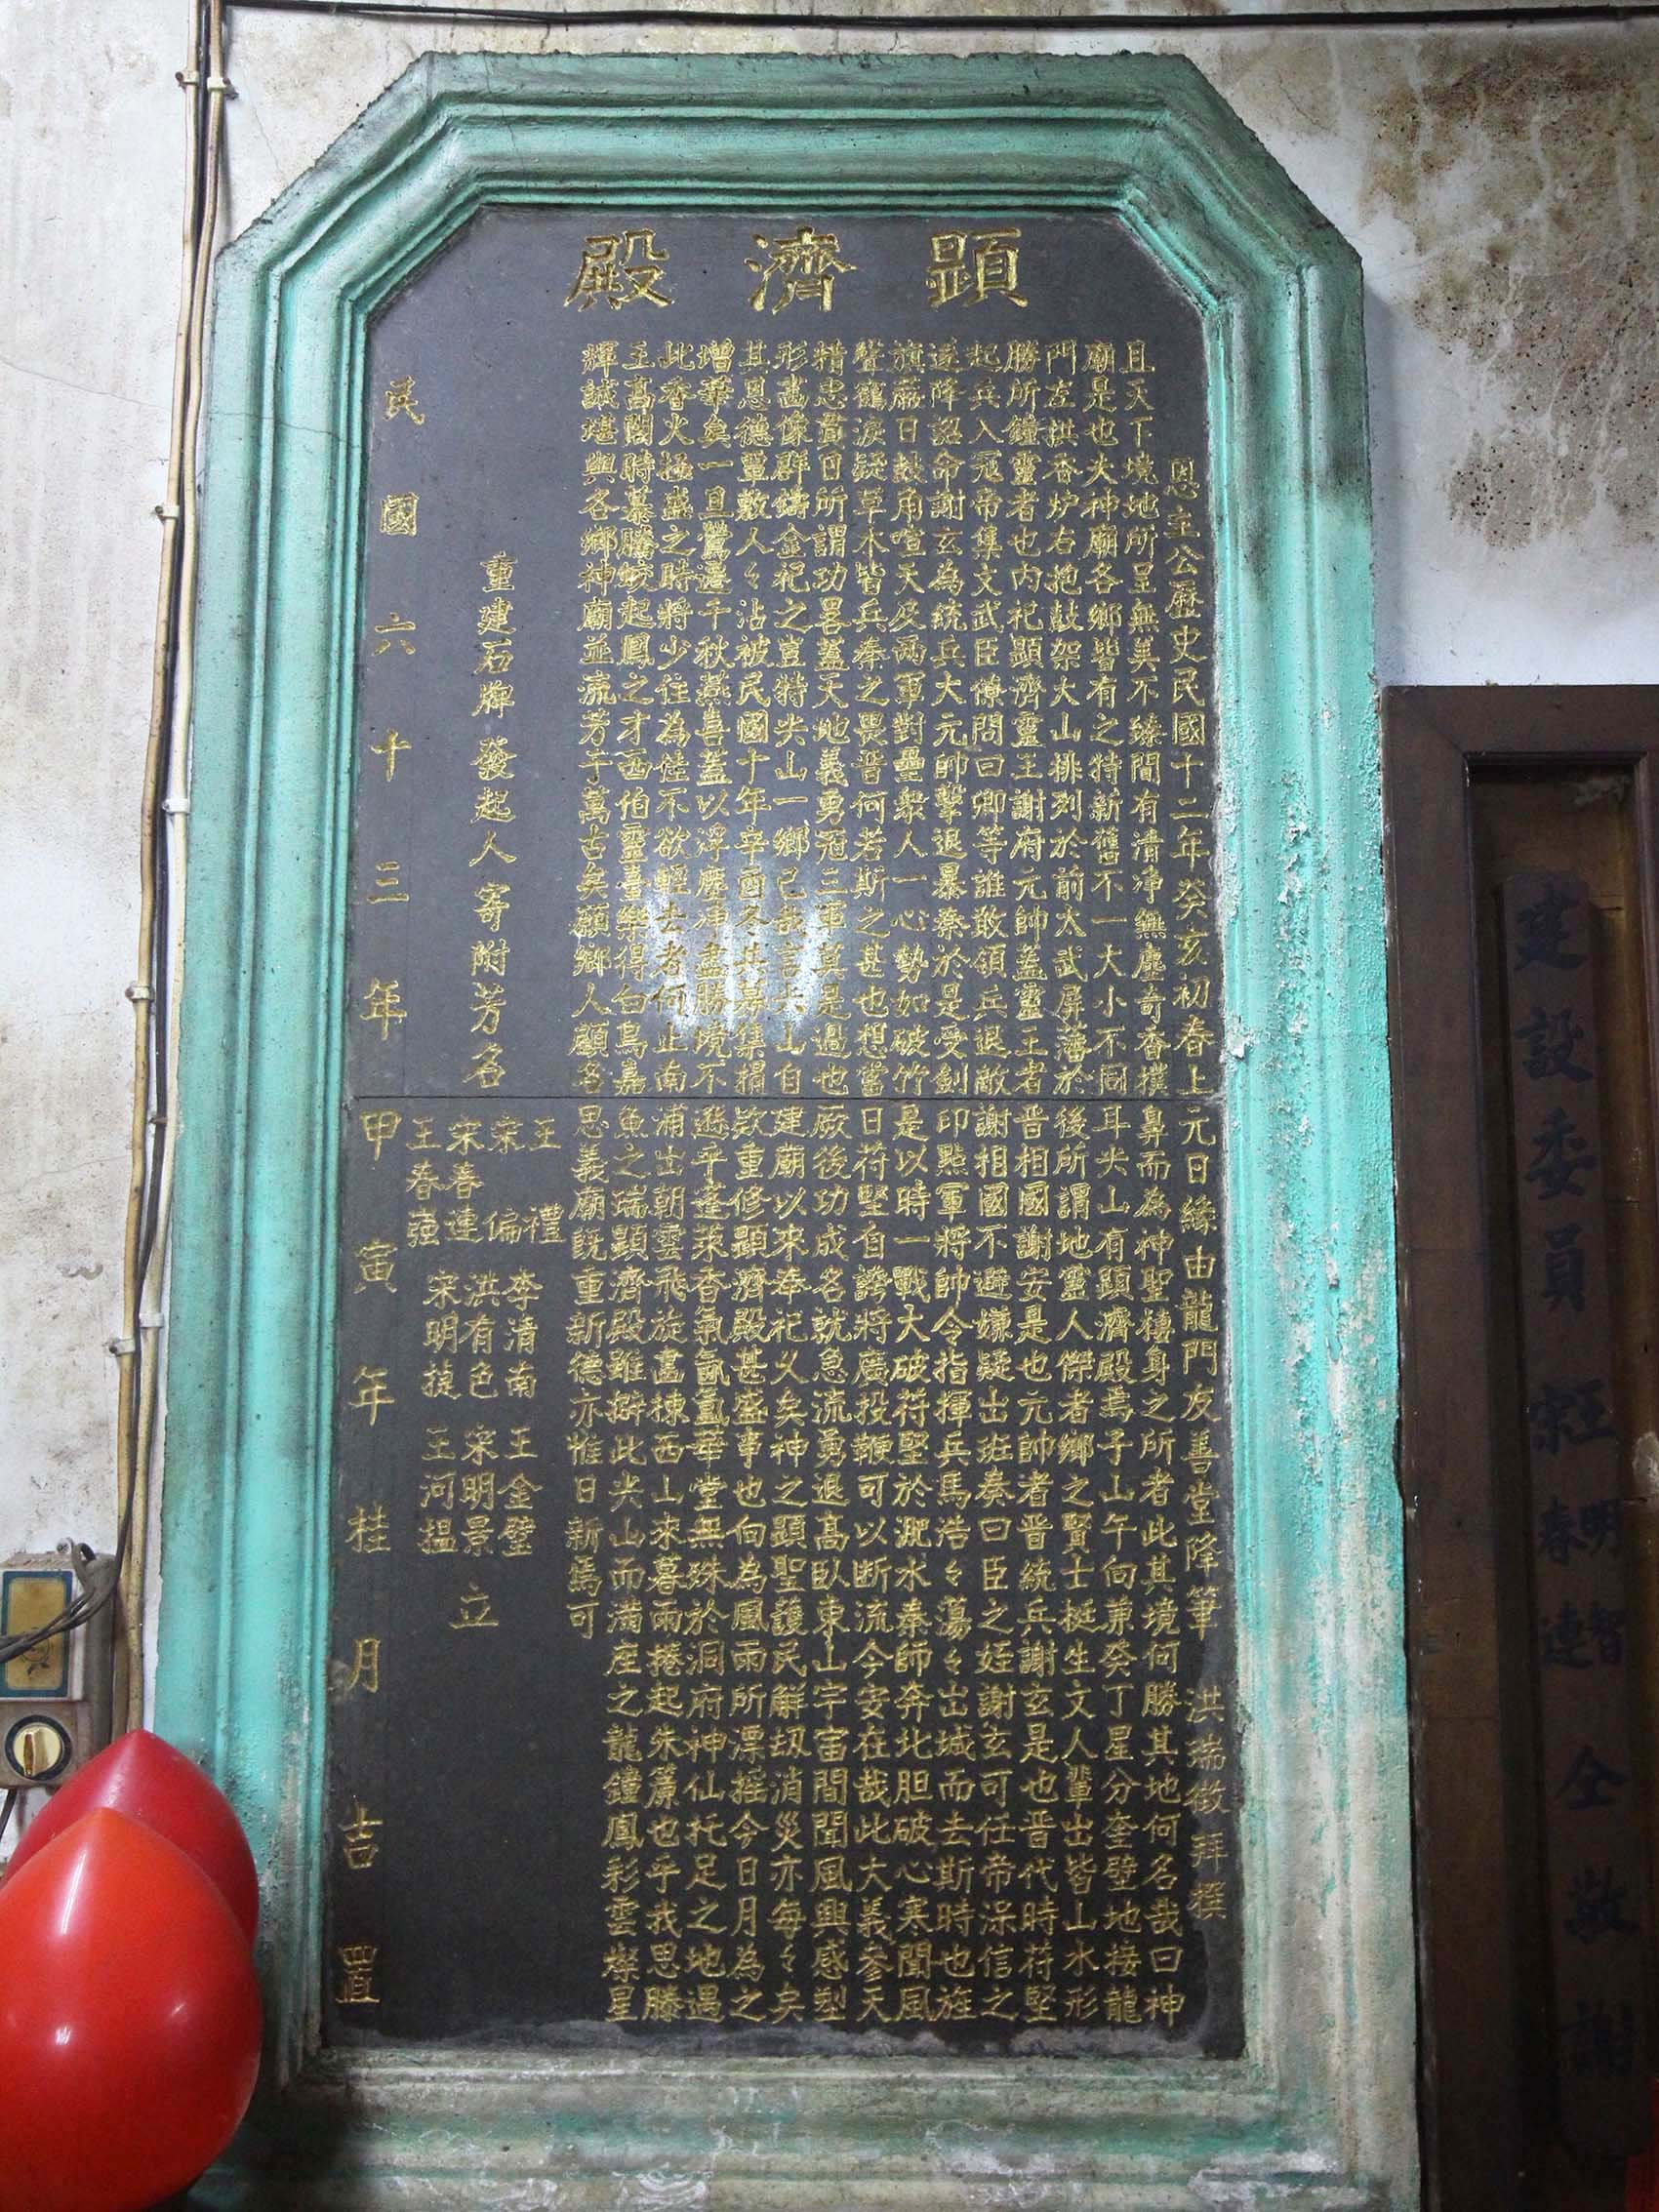 顕濟殿
恩主公歷史民國十二年癸亥初春上元日緣由龍門友善堂降筆 洪瑞徵拜撰
且天下境地所呈無美不臻間有清净無塵奇香撲鼻而為神聖棲身之所者此其境何勝其地何名哉曰神
廟是也夫神廟各鄉皆有之特新舊不一大小不同耳尖山有顕濟殿焉子山午向兼癸丁星分奎壁地接龍
門左拱香炉右抱鼓架大山排列於前太武屏藩於後所謂地靈人傑者鄉之賢士挺生文人輩出皆山水形
勝所鐘靈者也内祀顕濟靈王謝府元帥蓋靈王者晋相國謝安是也元帥者晋統兵謝玄是也晋代時苻堅
起兵入冦帝集文武臣僚問曰卿等誰敢領兵退敵謝相國不避嫌疑出班奏曰臣之姪謝玄可任帝深信之
遂降詔命謝玄為統兵大元帥擊退暴秦於是受劍印點軍將帥令指揮兵馬浩々蕩々出城而去斯時也旌
旗蔽日鼓角喧天及兩軍對壘衆人一心勢如破竹是以時一戰大破苻堅於淝水秦師奔北胆破心寒聞風
聲鶴淚疑草木皆兵秦之畏晋何若斯之甚也想當日苻堅自誇將廣投鞭可以断流今安在哉此大義參天
精忠貫日所謂功畧蓋天地義勇冠三軍莫是過也厥後功成名就急流勇退高臥東山宇宙間聞風興感型
形畵像群鑄金祀之豈特尖山一鄉已哉言尖山自建廟以來奉祀乂矣神之顕聖護民解刼消災亦每々矣
其恩德覃敷人々沾被民國十年辛酉冬共募集捐欵重修顕濟殿甚盛事也向為風雨所漂摇今日月為之
增華矣一旦鶯遷千秋燕喜蓋以浮塵凍盡勝境不遜乎蓬萊香氣氤氳華堂無殊於洞府神仙托足之地遇
此香火極盛之時將少住為佳不欲輕去者何止南浦出朝雲飛旋畵棟西山來暮雨捲起朱簾也乎我思滕
王高閣時慕騰蛟起鳳之才西伯靈臺樂得白鳥嘉魚之瑞顕濟殿雖僻此尖山而滿座之龍鐘鳳彩雲燦星
輝誠堪與各鄉神廟並流芳于萬古矣願鄉人顧名思義廟既重新德亦惟日新焉可
重建石牌 發起人寄附芳名
王禮 李清南 王金壁
宋偏 洪有色 宋明景
宋春連 宋明㨗 王河揾
王春强
立
民國六十三年甲寅年桂月吉置
建設委員 宋春連 王明智 仝敬謝